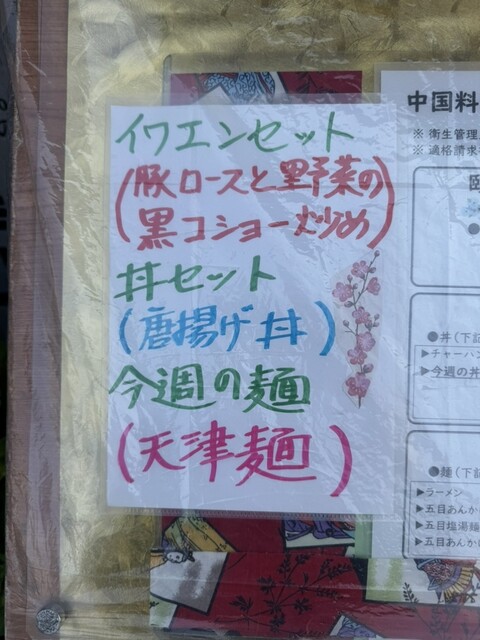 イワエンセット
(豚ロースと野菜の
黒コショー炒め)
丼セット
(唐揚げ丼)
今週の麺
(天津麺)
中国料
※ 衛生管理
※ 適格請求
●丼(下記
▶チャーハン
▶今週の丼
●麺(下記
▶ラーメン
▶五目あんか
▶五目塩湯麺
▶五目あんか